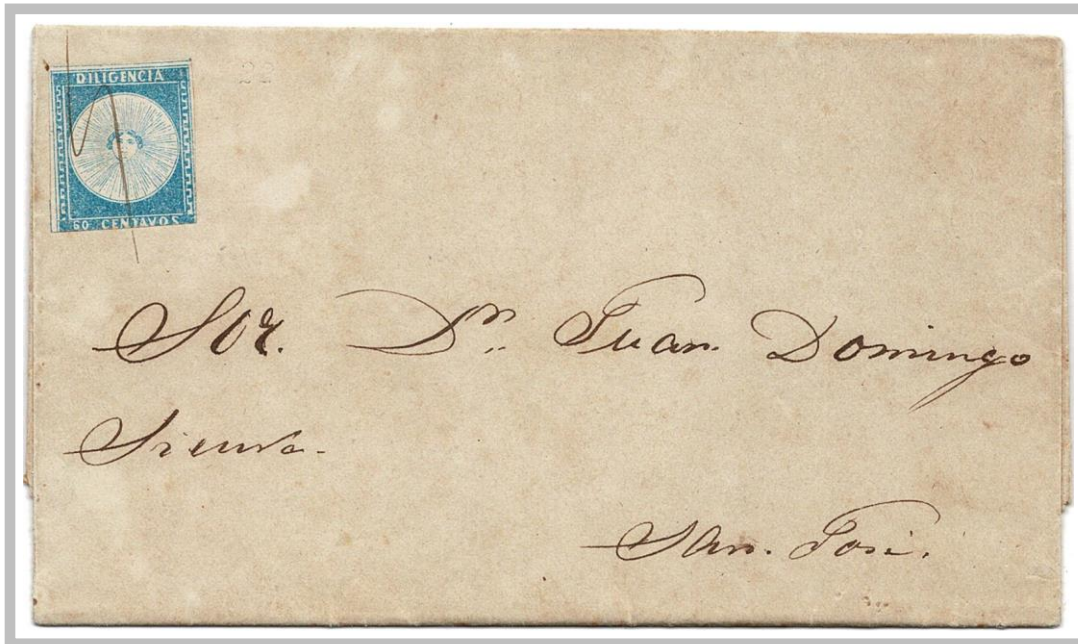 DILIGENCIA
60 CENTAVOS
22
Sor. Dn. Juan Domingo
San José.